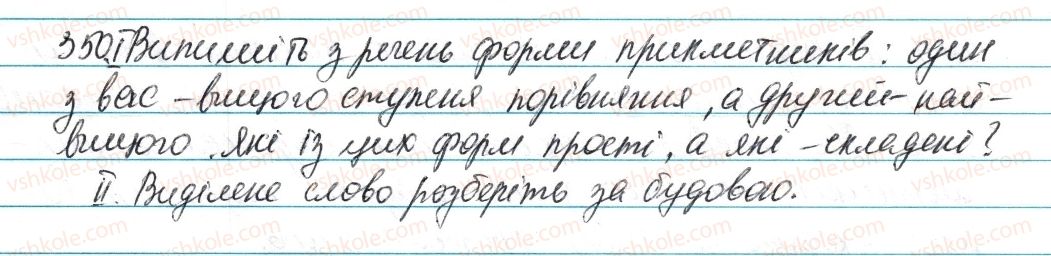 350. I Випишіть з речень форми прикметників: один
з вас – вищого ступеня порівняння, а другий – най-
вищого. Які із цих форм прості, а які – складені?
II. Виділене слово розберіть за будовою.